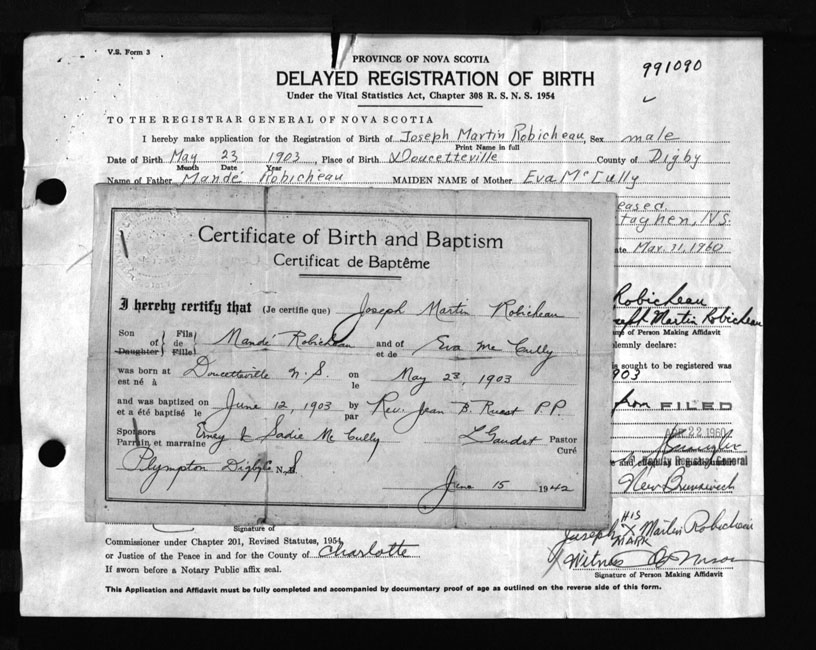 V.S. Form 3
PROVINCE OF NOVA SCOTIA
991090
DELAYED REGISTRATION OF BIRTH
Under the Vital Statistics Act, Chapter 308 R. S. N. S. 1954
TO THE REGISTRAR GENERAL OF NOVA SCOTIA
I hereby make application for the Registration of Birth of Joseph Martin Robicheau, Sex male
Print Name in full
Date of Birth May 23 1903, Place of Birth Doucetteville County of Digby
Month Date Year
Name of Father Mandé Robicheau MAIDEN NAME of Mother Eva McCully
eased.
taghen, N.S.
ate Mar. 11, 1960
Certificate of Birth and Baptism
Certificat de Baptême
I hereby certify that (Je certifie que) Joseph Martin Robicheau
Son Daughter of Fils Fille de Mandé Robicheau and of et de Eva McCully
was born at est né à Doucetteville N.S. on le May 23, 1903
and was baptized on et a été baptisé le June 12, 1903 by par Rev. Jean B. Ruest P.P.
Sponsors Parrain et marraine Emey & Sadie McCully L Gaudet Pastor Curé
Plympton Digby Co N. S
June 15 1942
Robicheau
seph Martin Robicheau
me of Person Making Affidavit
lemnly declare:
s sought to be registered was
903
FILED
22 1960
Deputy Registrar General
New Brunswick
Signature of
Commissioner under Chapter 201, Revised Statutes, 1954,
or Justice of the Peace in and for the County of Charlotte
If sworn before a Notary Public affix seal.
HIS
Joseph X Martin Robicheau
MARK
Witness
Signature of Person Making Affidavit
This Application and Affidavit must be fully completed and accompanied by documentary proof of age as outlined on the reverse side of this form.